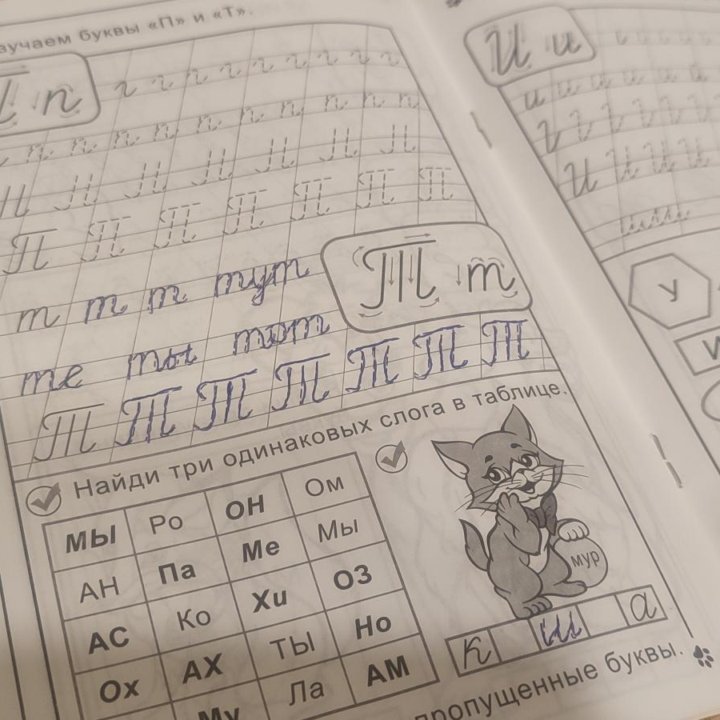 зучаем буквы «П» и «Т».
П п
т т т тут
те ты тот
Т т
Т Т Т Т Т Т Т
Найди три одинаковых слога в таблице.
МЫ Ро ОН Ом
АН Па Ме Мы
АС Ко Хи ОЗ
Ох АХ ТЫ Но
Му Ла АМ
мур
к ш а
пропущенные буквы.
И и
У